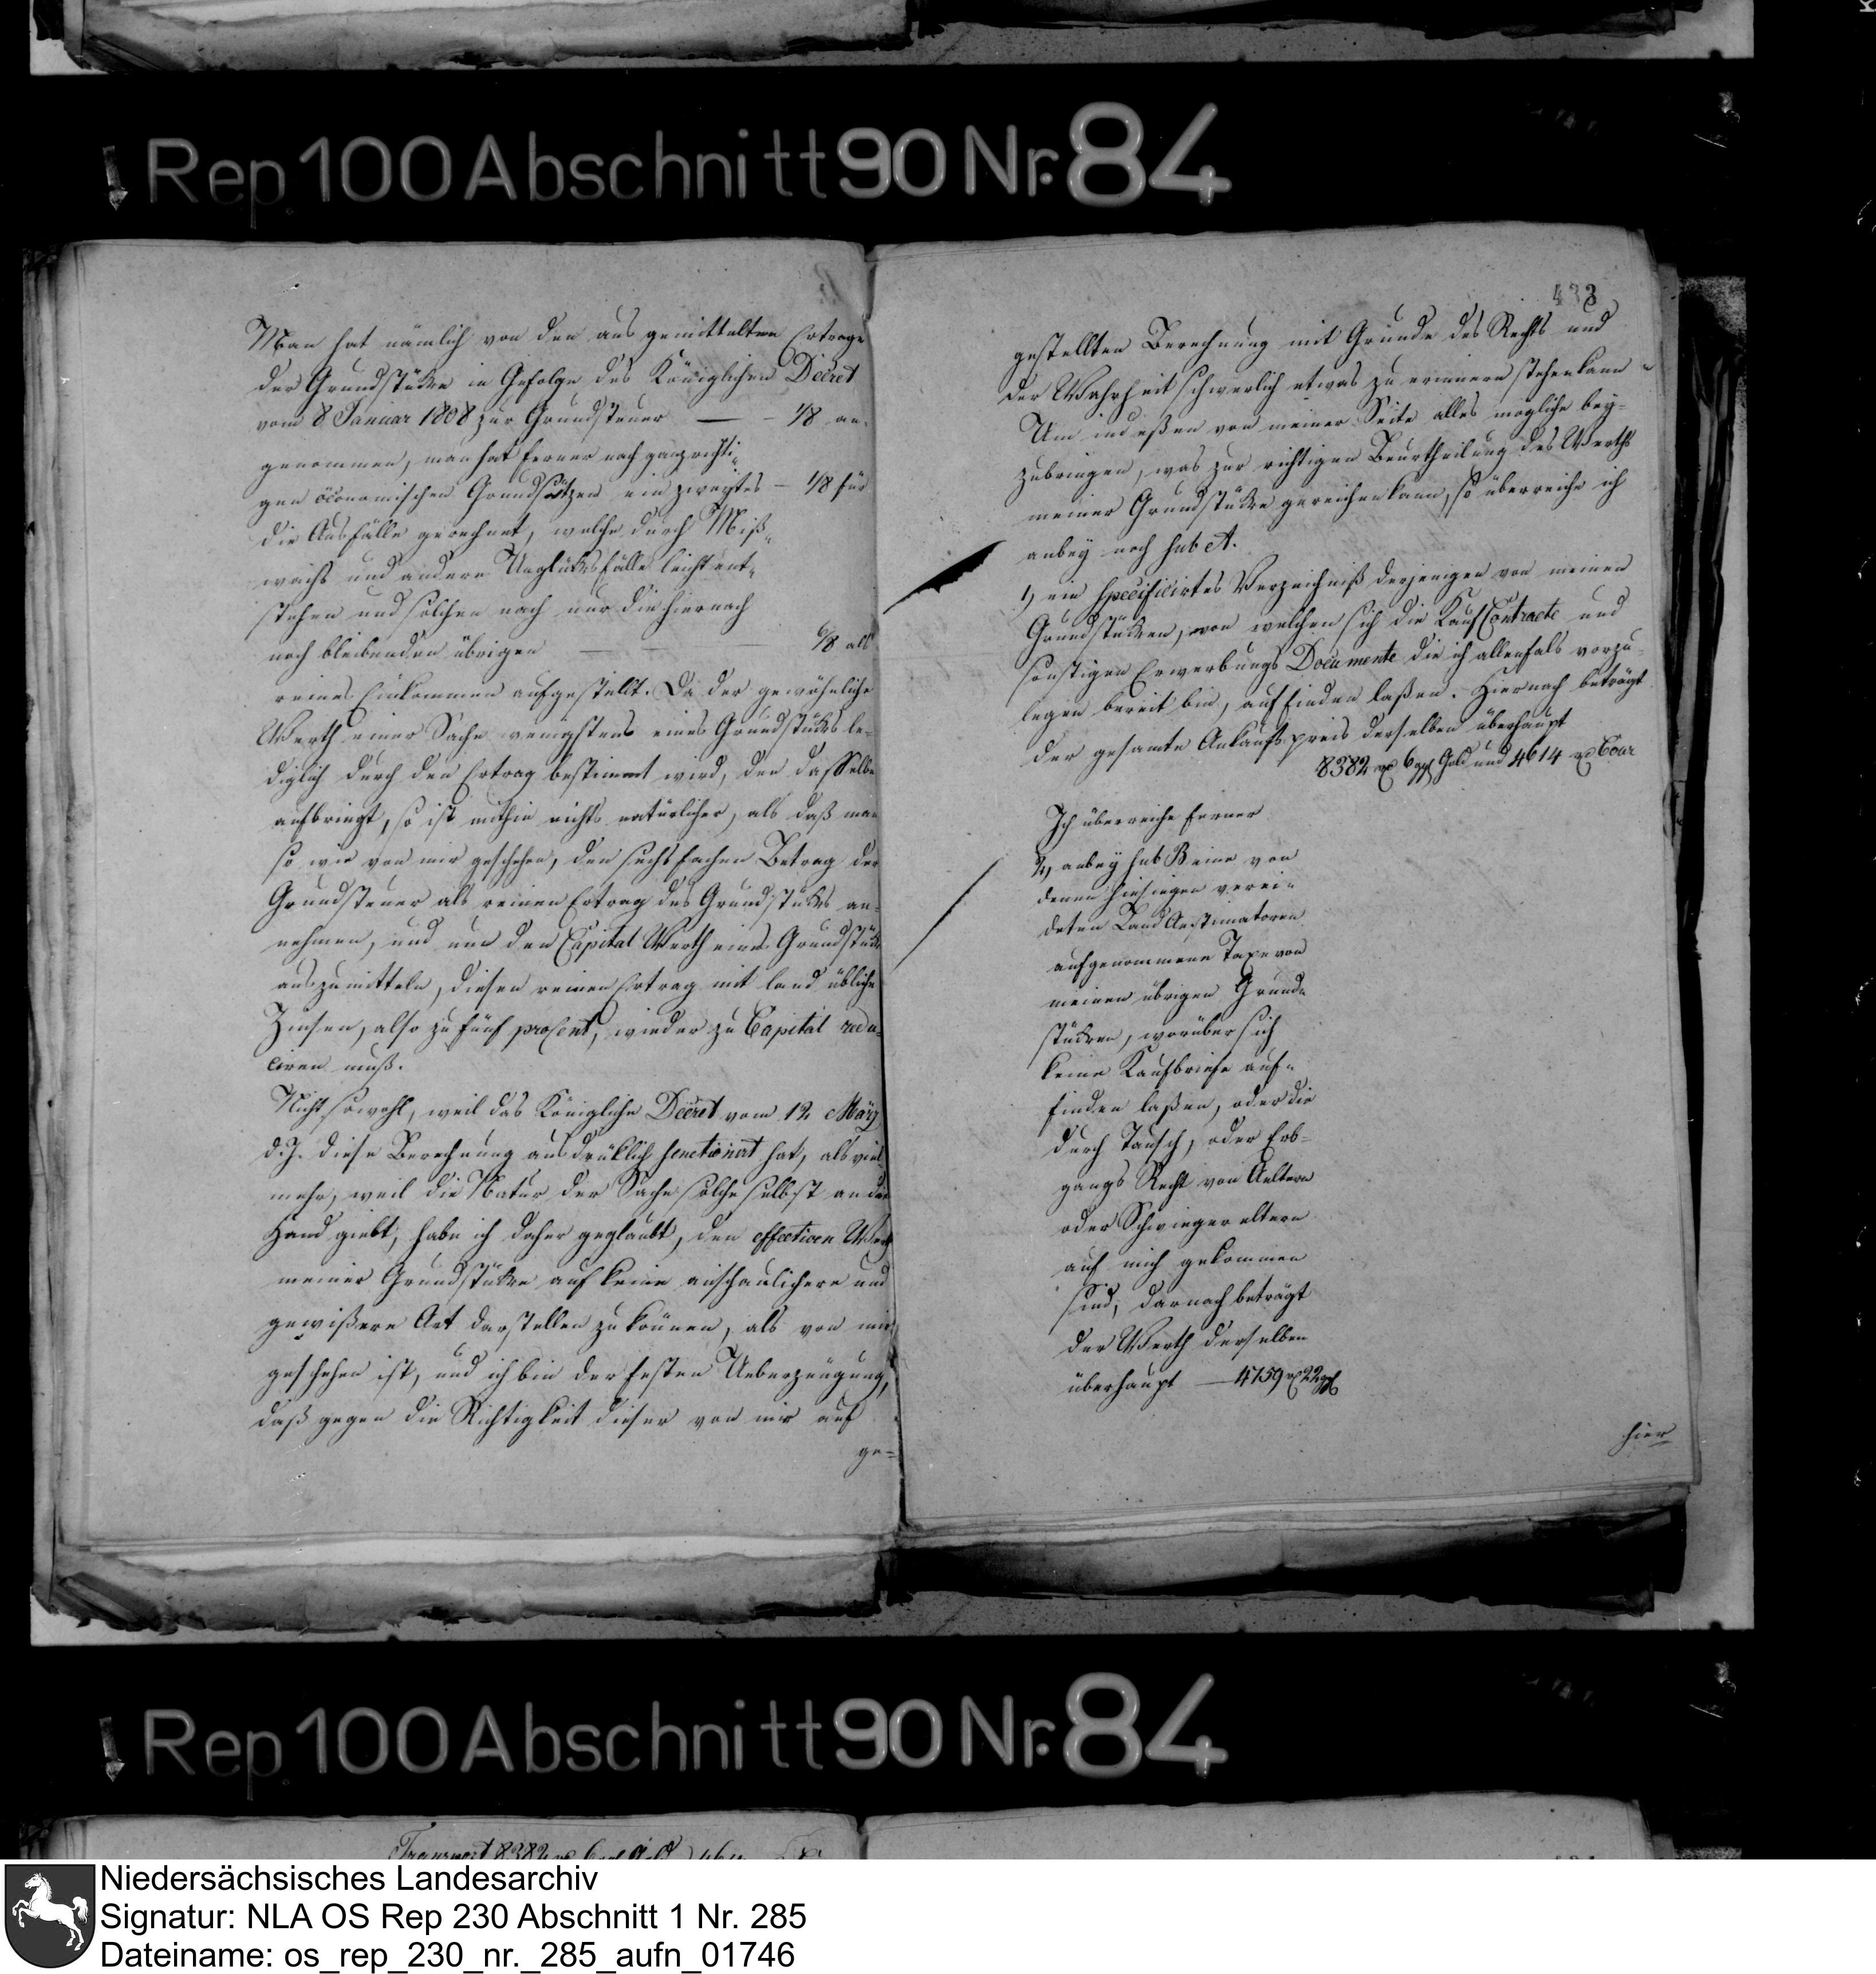 Rep 100 Abschnitt 90 Nr. 84
Man hat nämlich von den ausgemittelten Ertrage
der Grundstücke in Gefolge des Königlichen Decret
vom 8 Januar 1808 zur Grundsteuer — 1/8 an-
genommen, man hat ferner nach ganz richti-
gen öconomischen Grundsätzen ein zweytes — 1/8 für
die Ausfälle gerechnet, welche durch Miß-
wachs und andere Unglücksfälle leicht ent-
stehen und solchen nach nur die hiernach
noch bleibenden übrigen — — — 6/8 als
reines Einkommen aufgestellt. Da der gewöhnliche
Werth einer Sache wenigstens eines Grundstücks le-
diglich durch den Ertrag bestimmt wird, den dasselbe
aufbringt, so ist mithin nichts natürlicher, als daß man
so wie von mir geschehen, den sechsfachen Betrag der
Grundsteuer als reinen Ertrag des Grundstücks an-
nehmen, und um den Capital Werth eines Grundstücks
auszumitteln, diesen reinen Ertrag mit landübliche
Zinsen, also zu fünf proCent, wieder zu Capital redu-
ciren muß.
Nicht sowohl, weil das Königliche Decret vom 12 März
d. J. diese Berechnung ausdrücklich senctionirt hat, als viel-
mehr, weil die Natur der Sache solche selbst an die
Hand giebt, habe ich daher geglaubt, den effectiven Werth
meiner Grundstücke auf keine anschaulichere und
gewißere Art darstellen zu können, als von mir
geschehen ist, und ich bin der festen Ueberzeugung,
daß gegen die Richtigkeit dieser von mir auf
ge-
433
gestellten Berechnung mit Grunde des Rechts und
der Wahrheit schwerlich etwas zu erinnern stehen kann
Um indeßen von meiner Seite alles mögliche bey-
zubringen, was zur richtigen Beurtheilung des Werths
meiner Grundstücke gereichen kann, so überreiche ich
anbey noch sub A.
1, ein specificirtes Verzeichniß derjenigen von meinen
Grundstücken, von welchen sich die KaufContracte und
sonstigen Erwerbungs Documente die ich allenfals vorzu-
legen bereit bin, auffinden laßen. Hiernach beträgt
der gesamte Ankaufspreis derselben überhaupt
8382 rt 6 ggl Gold und 4614 rt Cour
Ich überreiche ferner
2, anbey sub B eine von
denen hiesigen verei-
deten Land Aestimatoren
aufgenommene Taxe von
meinen übrigen Grund-
stücken, worüber sich
keine Kaufbriefe auf-
finden laßen, oder die
durch Tausch, oder Erb-
gangs Recht von Aeltern
oder Schwiegereltern
auf mich gekommen
sind, darnach beträgt
der Werth derselben
überhaupt — 4759 rt 22 ggl
hier
Rep 100 Abschnitt 90 Nr. 84
Transport 8382
Niedersächsisches Landesarchiv
Signatur: NLA OS Rep 230 Abschnitt 1 Nr. 285
Dateiname: os_rep_230_nr._285_aufn_01746